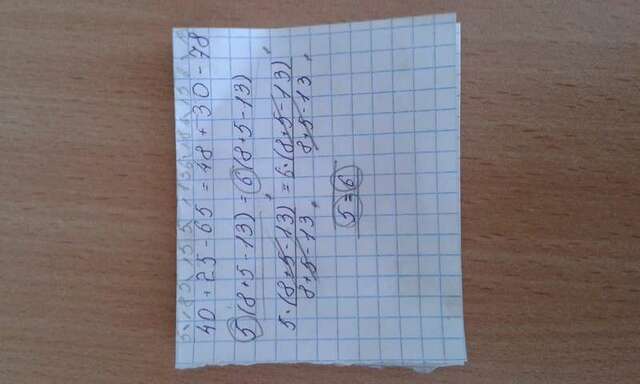 40 + 25 - 65 = 48 + 30 - 78
5(8+5-13) = 6(8+5-13)
5·(8+5-13) = 6·(8+5-13)
8+5-13 8+5-13
5 = 6